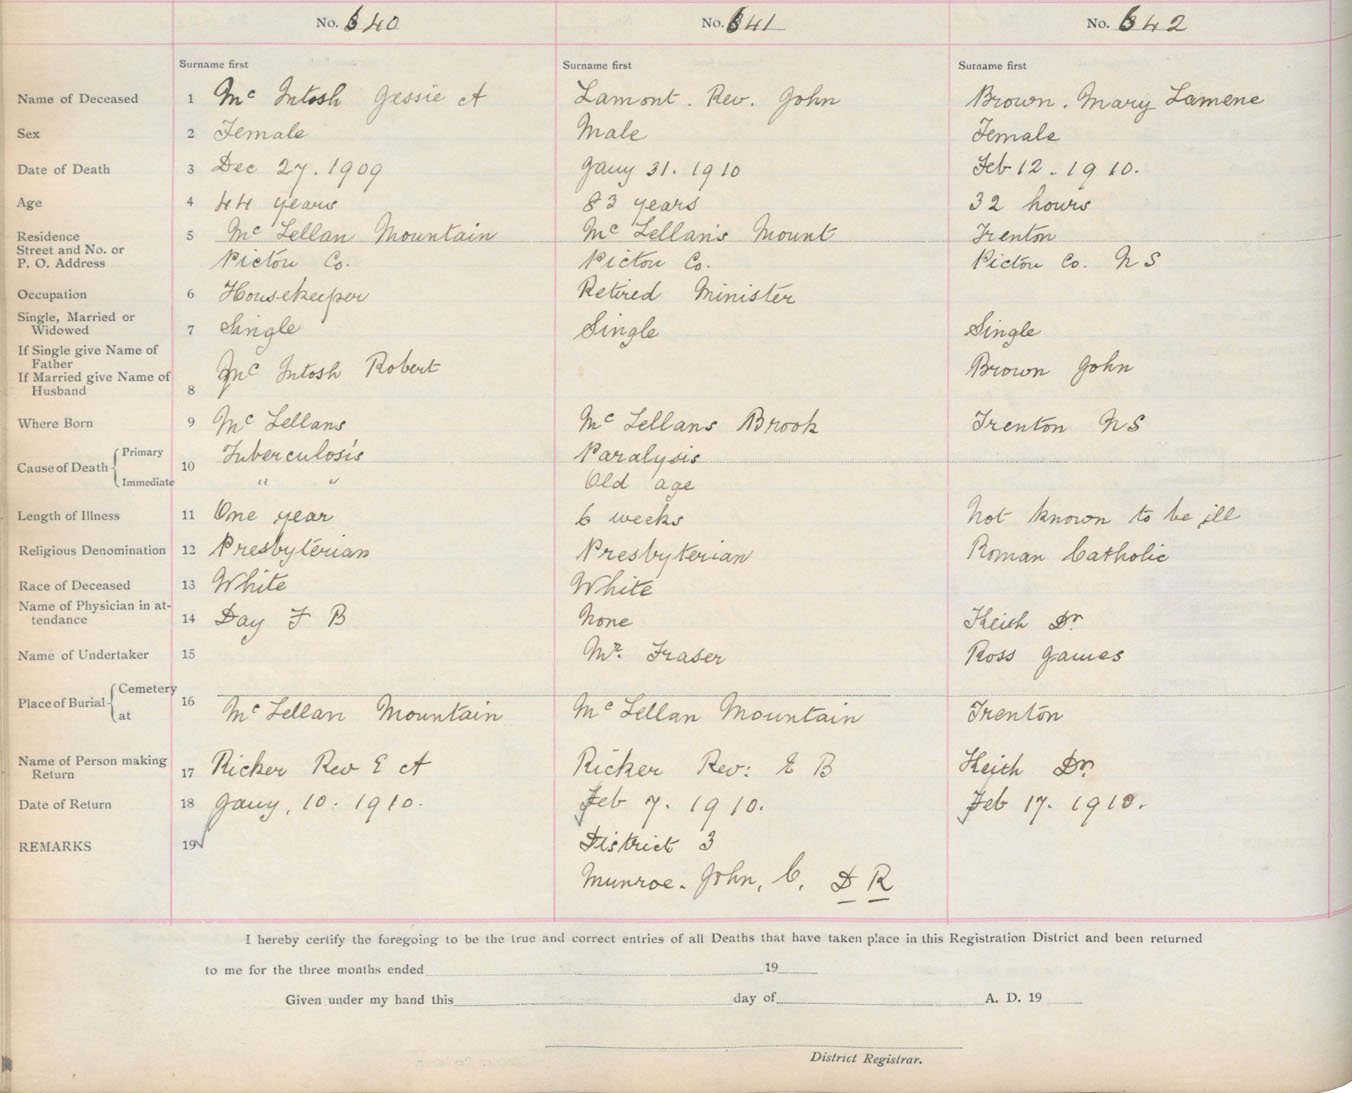 No. 640 No. 641 No. 642
Surname first Surname first Surname first
Name of Deceased 1 Mc Intosh Jessie A Lamont. Rev. John Brown. Mary Lamene
Sex 2 Female Male Female
Date of Death 3 Dec 27. 1909 Jany 31. 1910 Feb 12. 1910.
Age 4 44 years 83 years 32 hours
Residence 5 Mc Lellan Mountain Mc Lellan's Mount Trenton
Street and No. or
P. O. Address Pictou Co. Pictou Co. Pictou Co. NS
Occupation 6 Housekeeper Retired Minister
Single, Married or
Widowed 7 Single Single Single
If Single give Name of
Father Mc Intosh Robert Brown John
If Married give Name of
Husband 8
Where Born 9 Mc Lellans Mc Lellans Brook Trenton NS
Cause of Death 10 Primary Tuberculosis Paralysis
Immediate " " Old age
Length of Illness 11 One year 6 weeks Not known to be ill
Religious Denomination 12 Presbyterian Presbyterian Roman Catholic
Race of Deceased 13 White White
Name of Physician in at-
tendance 14 Day F B None Keith Dr
Name of Undertaker 15 Mr. Fraser Ross James
Place of Burial 16 Cemetery
at Mc Lellan Mountain Mc Lellan Mountain Trenton
Name of Person making
Return 17 Ricker Rev E A Ricker Rev: E B Keith Dr.
Date of Return 18 Jany, 10. 1910. Feb 7. 1910. Feb 17. 1910.
REMARKS 19 District 3
Munroe. John, C. D R
I hereby certify the foregoing to be the true and correct entries of all Deaths that have taken place in this Registration District and been returned
to me for the three months ended 19
Given under my hand this day of A. D. 19
District Registrar.